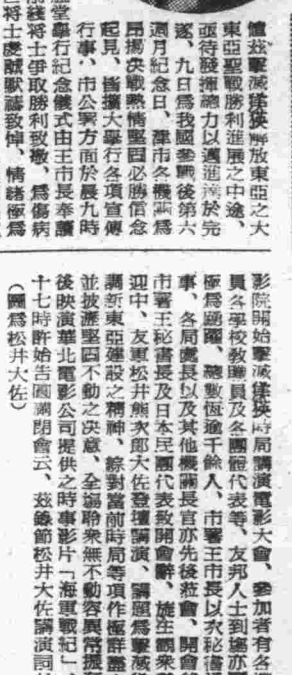 値茲擊滅解放東亞之大
東亞聖戰勝利進展之中途、
亟待發揮總力以邁進達於完
逐、九日爲我國參戰後第六
週月紀念日、津市各機關爲
昂揚決戰熱情堅固必勝信念
起見、皆擴大舉行各項宣傳
行事、市公署方面於晨九時
堂舉行紀念儀式由王市長奉讀
將士爭取勝利致敬、爲傷病
將士虔誠默禱致悼、情緒極爲
影院開始擊滅時局講演電影大會、參加者有各
員各學校敎職員及各團體代表等、友邦人士到塲亦
極爲踴躍、總數恆逾千餘人、市署王市長以次秘書
事、各局處長以及其他機關長官亦先後蒞會、開會
市署王秘書長及日本民團代表致開會辭、旋在觀衆
迎中、友軍松井熊次郎大佐登壇講演、講題爲擊滅
調新東亞建設之精神、綜對當前時局等項作極詳盡
並披瀝堅固不動之決意、全塲聆衆無不動容異常振
後映演華北電影公司提供之時事影片「海軍戰紀」、
十七時許始告圓滿閉會云、茲錄節松井大佐講演詞
（圖爲松井大佐）